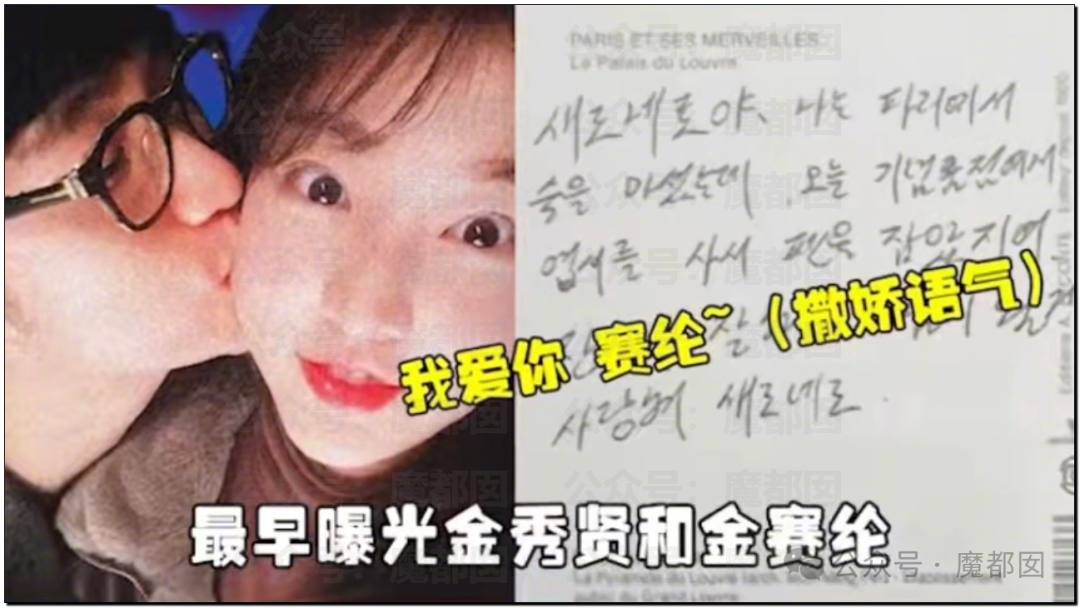 PARIS ET SES MERVEILLES
Le Palais du Louvre
새로네로야, 나는 파리에서
술을 마셨는데 오늘 기념품점에서
엽서를 사서 펜을
我爱你 赛纶~（撒娇语气）
사랑해 새로네로.
最早曝光金秀贤和金赛纶
公众号 · 魔都囡